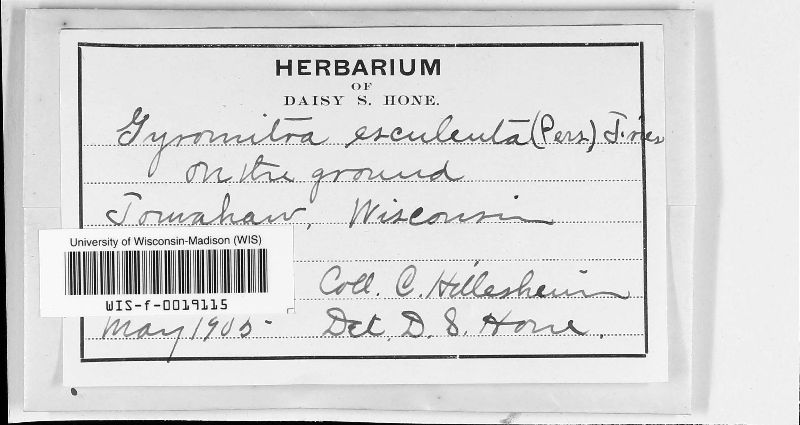 HERBARIUM
OF
DAISY S. HONE.
Gyromitra esculenta (Pers.) Fries
on the ground
Tomahaw, Wisconsin
University of Wisconsin-Madison (WIS)
WIS-f-0019115
Coll. C. Hillesheim
May 1905- Det. D. S. Hone.